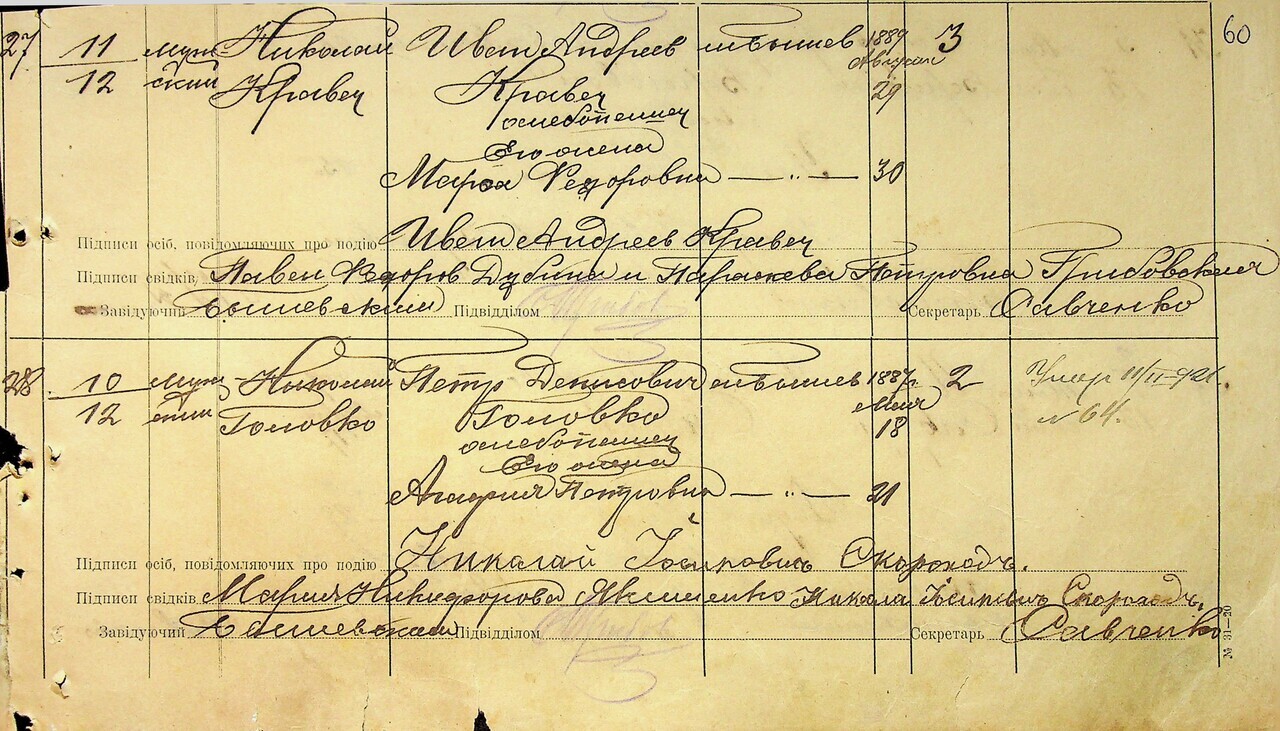 60
27 11 муж Николай Иван Андреев 1889 3
12 ский Кравец Кравец Августа 29
хлебопашец
Его жена
Мария Федоровна — „ — 30
Підписи осіб, повідомляючих про подію Иван Андреев Кравец
Підписи свідків Павел Федоров Дубина и Параскева Петровна Грибовская
Завідуючий Підвідділом Секретарь Савченко
28 10 муж Николай Петр Денисович 1887 г. 2 Умер 11/II-921.
12 ский Головко Головко Мая 18 № 64.
хлебопашец
Его жена
Агафия Петровна — „ — 21
Підписи осіб, повідомляючих про подію Николай Іосиповичъ Скороходъ.
Підписи свідків Мария Никифорова Якименко Никола Іосиповичъ Скороходъ.
Завідуючий Підвідділом Секретарь Савченко
№ 31—20